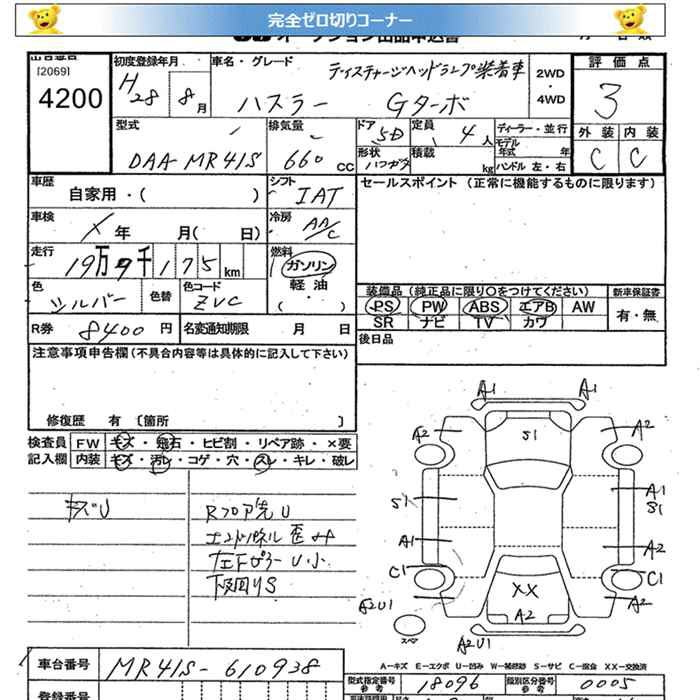 完全ゼロ切りコーナー
オークション出品申込書
出品番号
[2069]
4200
初度登録年月
H28 8月
車名・グレード
ディスチャージヘッドランプ装着車
ハスラー Gターボ
2WD
・
4WD
評価点
3
型式
DAA-MR41S
排気量
660 CC
ドア
5D
定員
4人
形状
積載
kg
ディーラー・並行
モデル年式 年
ハンドル 左・右
外装 内装
C C
車歴
自家用・( )
シフト
IAT
セールスポイント (正常に機能するものに限ります)
車検
年 月( 日)
冷房
AA/C
走行
19万9千175km
燃料
ガソリン
軽油
( )
色
シルバー
色替
色コード
ZVC
装備品(純正品に限り○をつけてください)
新車保証書
PS PW ABS エアB AW
SR ナビ TV カワ
有・無
R券 8400円
名変通知期限 月 日
後日品
注意事項申告欄(不具合内容等は具体的に記入して下さい)
修復歴 有 〔箇所 〕
検査員記入欄
FW キズ・飛石・ヒビ割・リペア跡・×要
内装 キズ・汚レ・コゲ・穴・スレ・キレ・破レ
キズU
Rフロア先U
エンドパネル歪
左Fピラー U小
下回りS
A1 A1
A2 S1 A2
S1 A1
S1
A1 A2
C1 C1
XX
A2U1 A2 A2
スペア
A2U1
A-キズ E-エクボ U-凹み W-補修跡 S-サビ C-腐食 XX-交換済
車台番号
MR41S-610938
型式指定番号
参考
18096
類別区分番号
参考
0005
登録番号